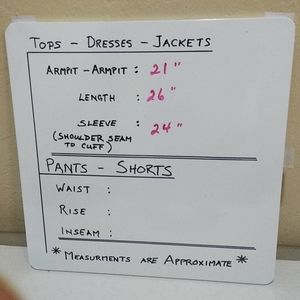 TOPS - DRESSES - JACKETS
ARMPIT - ARMPIT : 21"
LENGTH : 26"
SLEEVE : 24"
(SHOULDER SEAM
TO CUFF)
PANTS - SHORTS
WAIST :
RISE :
INSEAM :
* MEASURMENTS ARE APPROXIMATE *